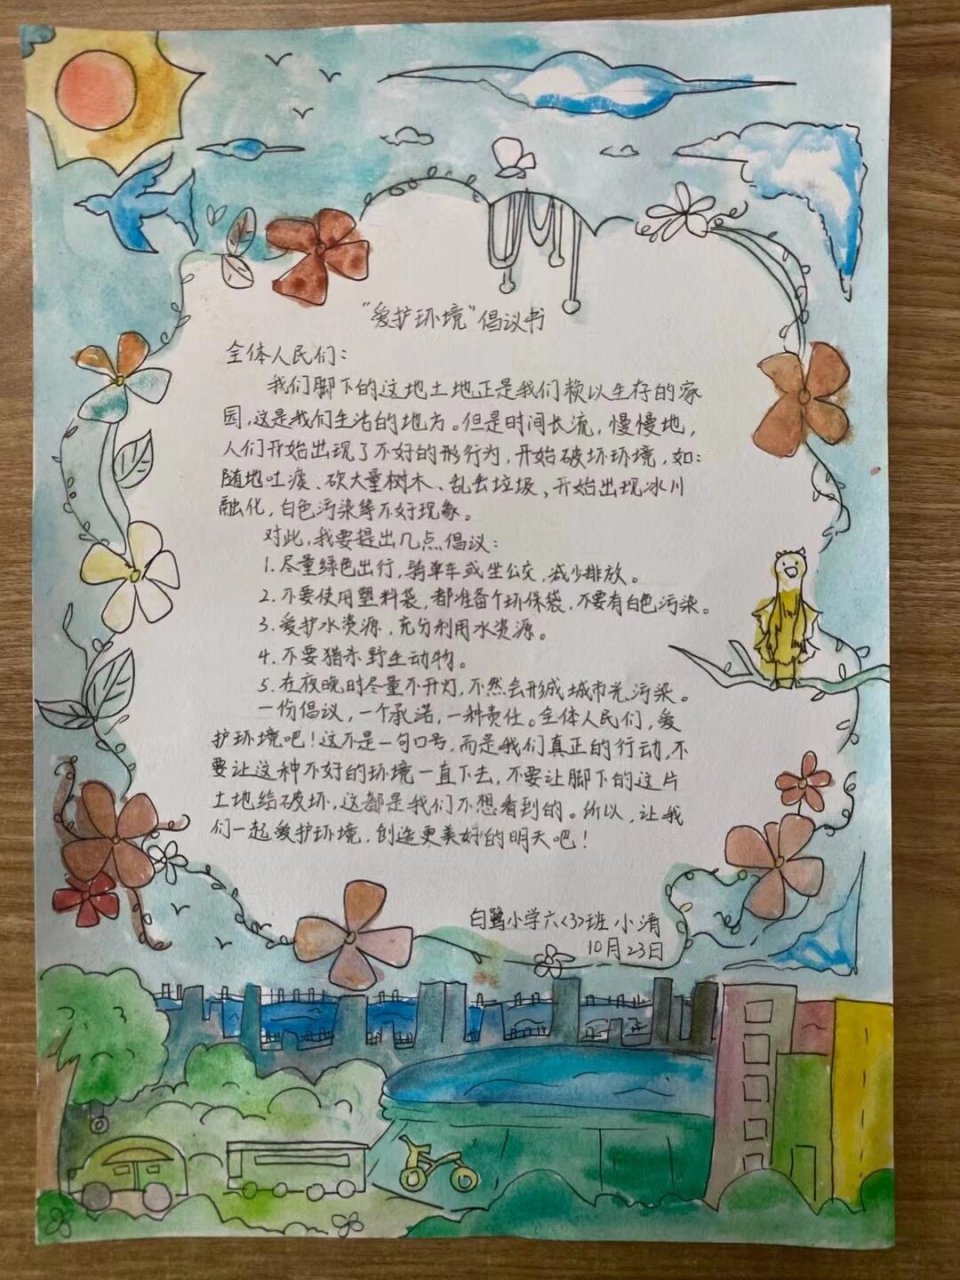 “爱护环境”倡议书
全体人民们：
我们脚下的这地土地正是我们赖以生存的家
园，这是我们生活的地方。但是时间长流，慢慢地，
人们开始出现了不好的形行为，开始破坏环境，如：
随地吐痰、砍大量树木、乱去垃圾、开始出现冰川
融化，白色污染等不好现象。
对此，我要提出几点倡议：
1.尽量绿色出行，骑单车或坐公交，减少排放。
2.不要使用塑料袋，都准备个环保袋，不要有白色污染。
3.爱护水资源，充分利用水资源。
4.不要猎杀野生动物。
5.在夜晚时尽量不开灯，不然会形成城市光污染。
一份倡议，一个承诺，一种责任。全体人民们，爱
护环境吧！这不是一句口号，而是我们真正的行动，不
要让这种不好的环境一直下去，不要让脚下的这片
土地给破坏，这都是我们不想看到的。所以，让我
们一起爱护环境，创造更美好的明天吧！
白鹭小学六〈3〉班 小清
10月23日